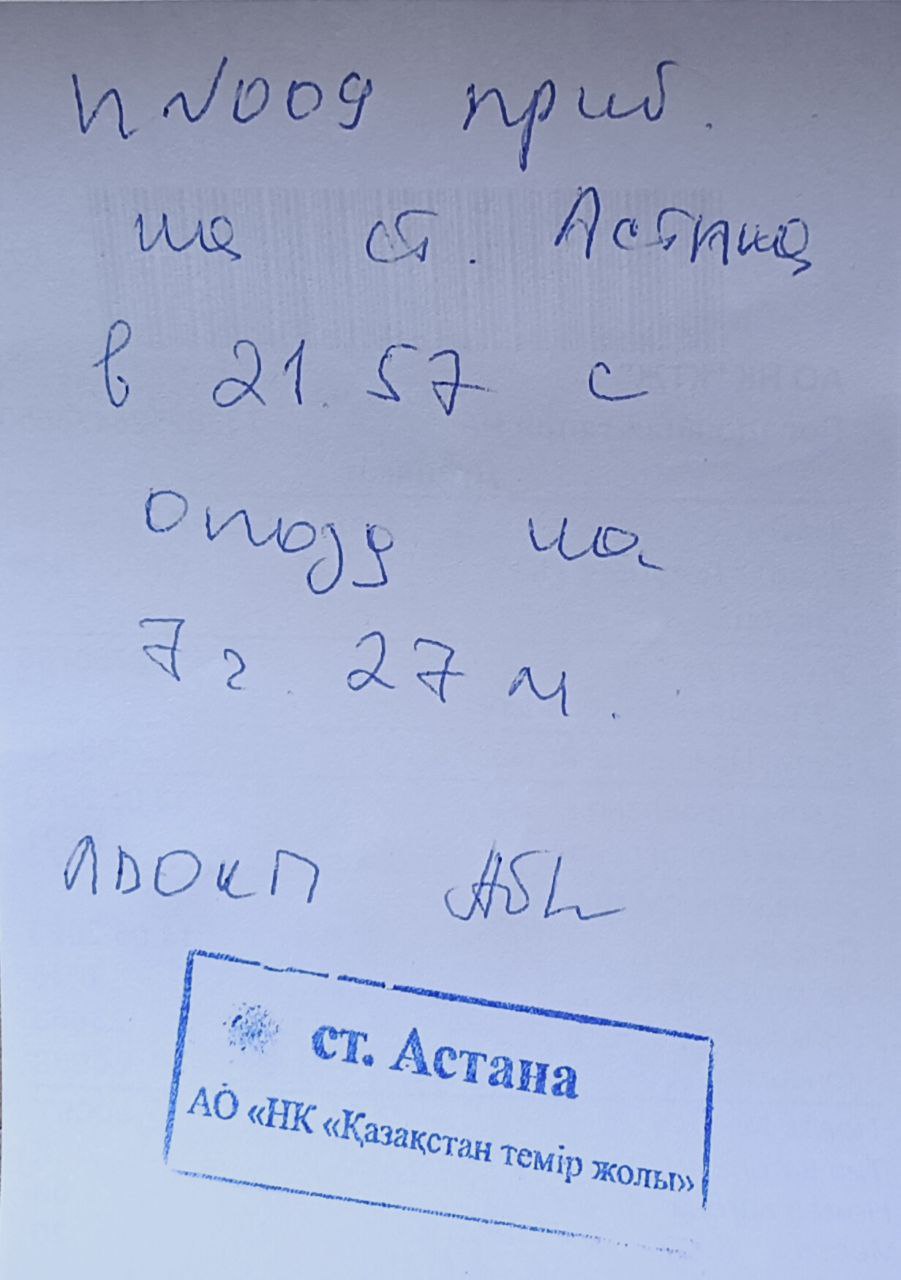 п №009 приб.
на ст. Астана
в 21.57 с
опозд на
7 г. 27 м.
ЛВОКП
ст. Астана
АО «НК «Қазақстан темір жолы»